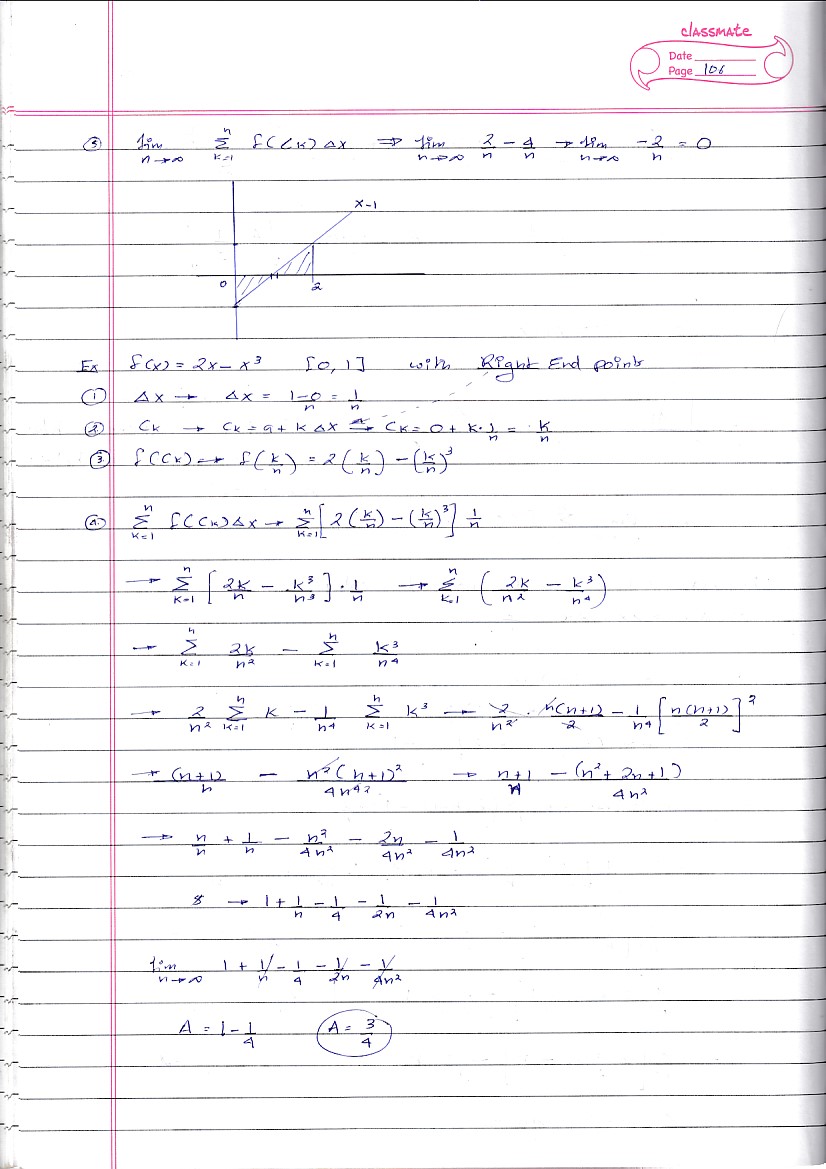 classmate
Date
Page 106
⑤ lim n→∞ Σ k=1 n f(Ck) Δx ⇒ lim n→∞ 2/n - 4/n → lim n→∞ -2/n = 0
x-1
0 2
Ex f(x) = 2x - x³ [0, 1] with Right End points
① Δx → Δx = (1-0)/n = 1/n
② Ck → Ck = a + k Δx → Ck = 0 + k·1/n = k/n
③ f(Ck) → f(k/n) = 2(k/n) - (k/n)³
④ Σ k=1 n f(Ck) Δx → Σ k=1 n [2(k/n) - (k/n)³] 1/n
→ Σ k=1 n [2k/n - k³/n³] · 1/n → Σ k=1 n (2k/n² - k³/n⁴)
→ Σ k=1 n 2k/n² - Σ k=1 n k³/n⁴
→ 2/n² Σ k=1 n k - 1/n⁴ Σ k=1 n k³ → 2/n² · n(n+1)/2 - 1/n⁴ [n(n+1)/2]²
→ (n+1)/n - n²(n+1)²/4n⁴² → (n+1)/n - (n²+2n+1)/4n²
→ n/n + 1/n - n²/4n² - 2n/4n² - 1/4n²
8 → 1 + 1/n - 1/4 - 1/2n - 1/4n²
lim n→∞ 1 + 1/n - 1/4 - 1/2n - 1/4n²
A = 1 - 1/4 A = 3/4